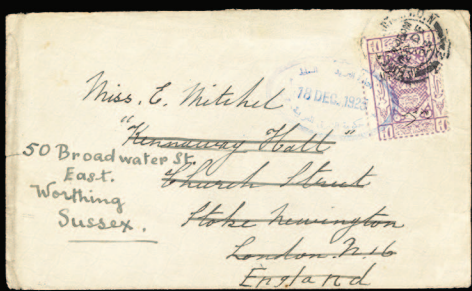 Miss. E. Mitchel
"Kennaway Hall"
Church Street
Stoke Newington
London. N.16
England
50 Broadwater St.
East.
Worthing
Sussex.
18 DEC. 192
10
10